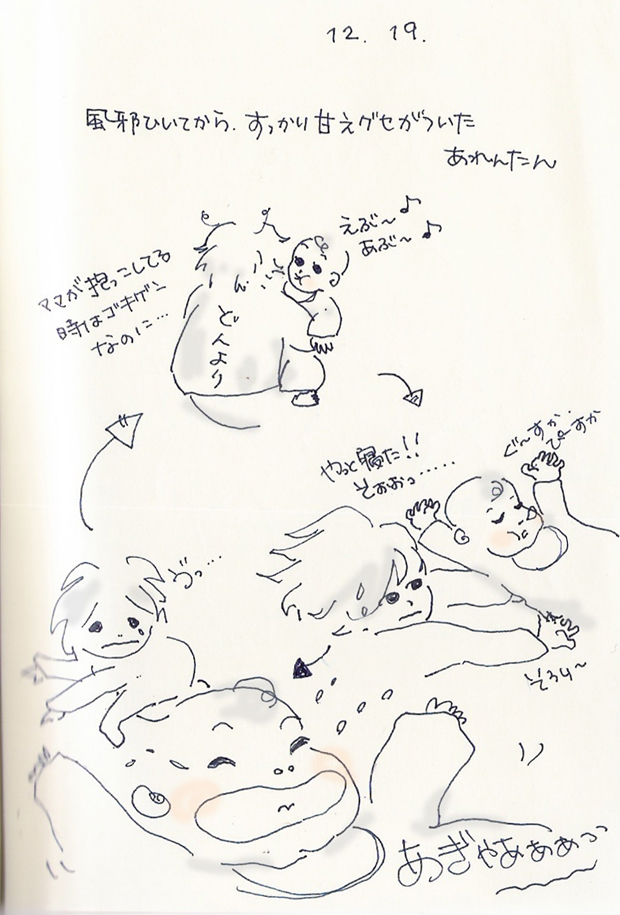 12. 19.
風邪ひいてから、すっかり甘えグセがついた
あれんたん
えぶ〜♪
あぶ〜♪
ママが抱っこしてる
時はゴキゲン
なのに…
どんより
ぐ〜すか、
ぴ〜すか
やっと寝た!!
そおおっ……
そろり〜
ゔっ…
あっぎゃあぁぁっっ